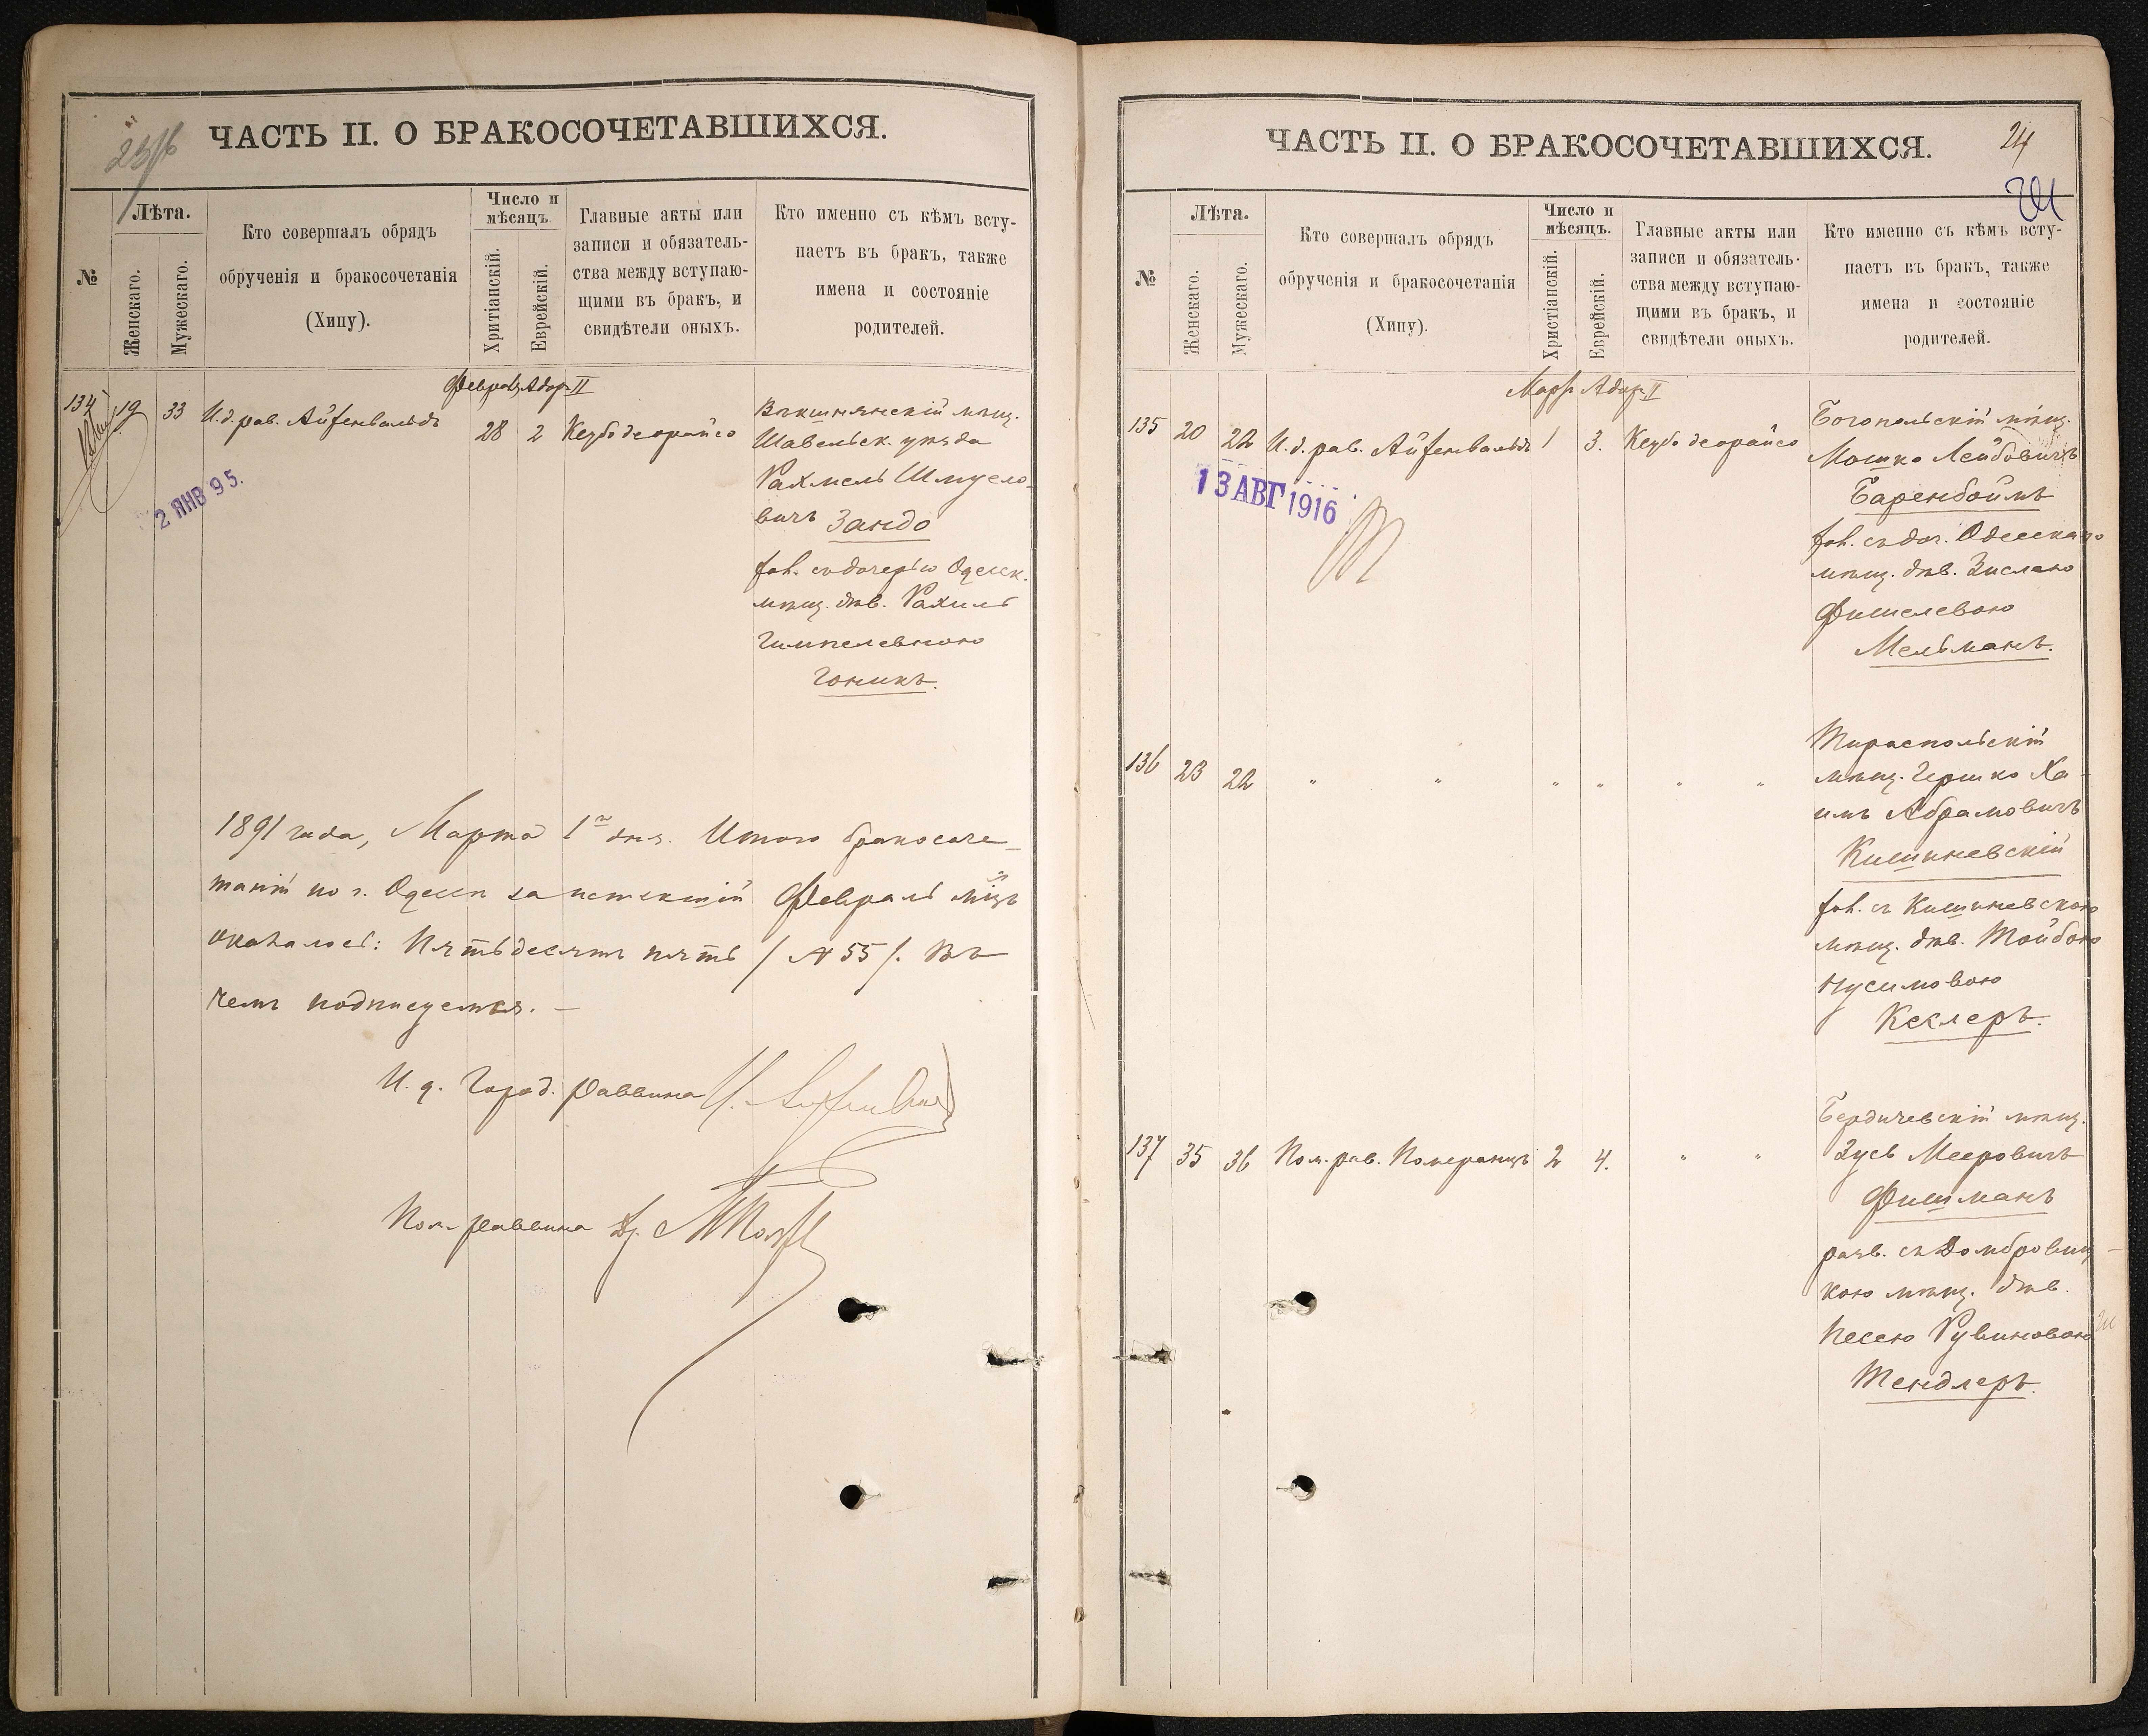 ЧАСТЬ II. О БРАКОСОЧЕТАВШИХСЯ.
№
Лѣта.
Женскаго.
Мужескаго.
Кто совершалъ обрядъ
обрученія и бракосочетанія
(Хипу).
Число и
мѣсяцъ.
Хритіанскій.
Еврейскій.
Главные акты или
записи и обязатель-
ства между вступаю-
щими въ бракъ, и
свидѣтели оныхъ.
Кто именно съ кѣмъ всту-
паетъ въ бракъ, также
имена и состояніе
родителей.
Феврал. Адар. II
134 19 33 И.д. рав. Айзенвальдъ 28 2 Кезубо деорайсо
Векшнянскій мѣщ.
Шавельск. уѣзда
Рахмель Шмуело-
вичъ Зандо
хол. съ дочерью Одесск.
мѣщ. дѣв. Рахиль
Гимпелевною
Гоникъ.
2 ЯНВ 95.
1891 года, Марта 1го дня. Итого бракосоче-
таній по г. Одессѣ за истекшій Февраль мѣсцъ
оказалось: Пятьдесятъ пять / № 55 /. Въ
чемъ подписуемся. —
И. д. Город. Раввина
Пом. Раввина Др.
ЧАСТЬ II. О БРАКОСОЧЕТАВШИХСЯ.
24
№
Лѣта.
Женскаго.
Мужескаго.
Кто совершалъ обрядъ
обрученія и бракосочетанія
(Хипу).
Число и
мѣсяцъ.
Христіанскій.
Еврейскій.
Главные акты или
записи и обязатель-
ства между вступаю-
щими въ бракъ, и
свидѣтели оныхъ.
Кто именно съ кѣмъ всту-
паетъ въ бракъ, также
имена и состояніе
родителей.
Мартъ Адар. II
135 20 22 И.д. рав. Айзенвальдъ 1 3. Кезубо деорайсо
Богопольскій мѣщ.
Мошко Лейбовичъ
Баренбоймъ
хол. съ доч. Одесскаго
мѣщ. дѣв. Зислею
Фишелевою
Мельманъ.
13 АВГ 1916
136 23 22 " " " " " "
Тираспольскій
мѣщ. Гершко Ха-
имъ Абрамовичъ
Кишиневскій
хол. съ Кишиневскою
мѣщ. дѣв. Тойбою
Нусимовою
Кеслеръ.
137 35 36 Пом. рав. Померанцъ 2 4. " "
Бердичевскій мѣщ.
Зусь Мееровичъ
Фишманъ
разв. съ Домбровиц-
кою мѣщ. дѣв.
Песею Рувиновою
Тендлеръ.